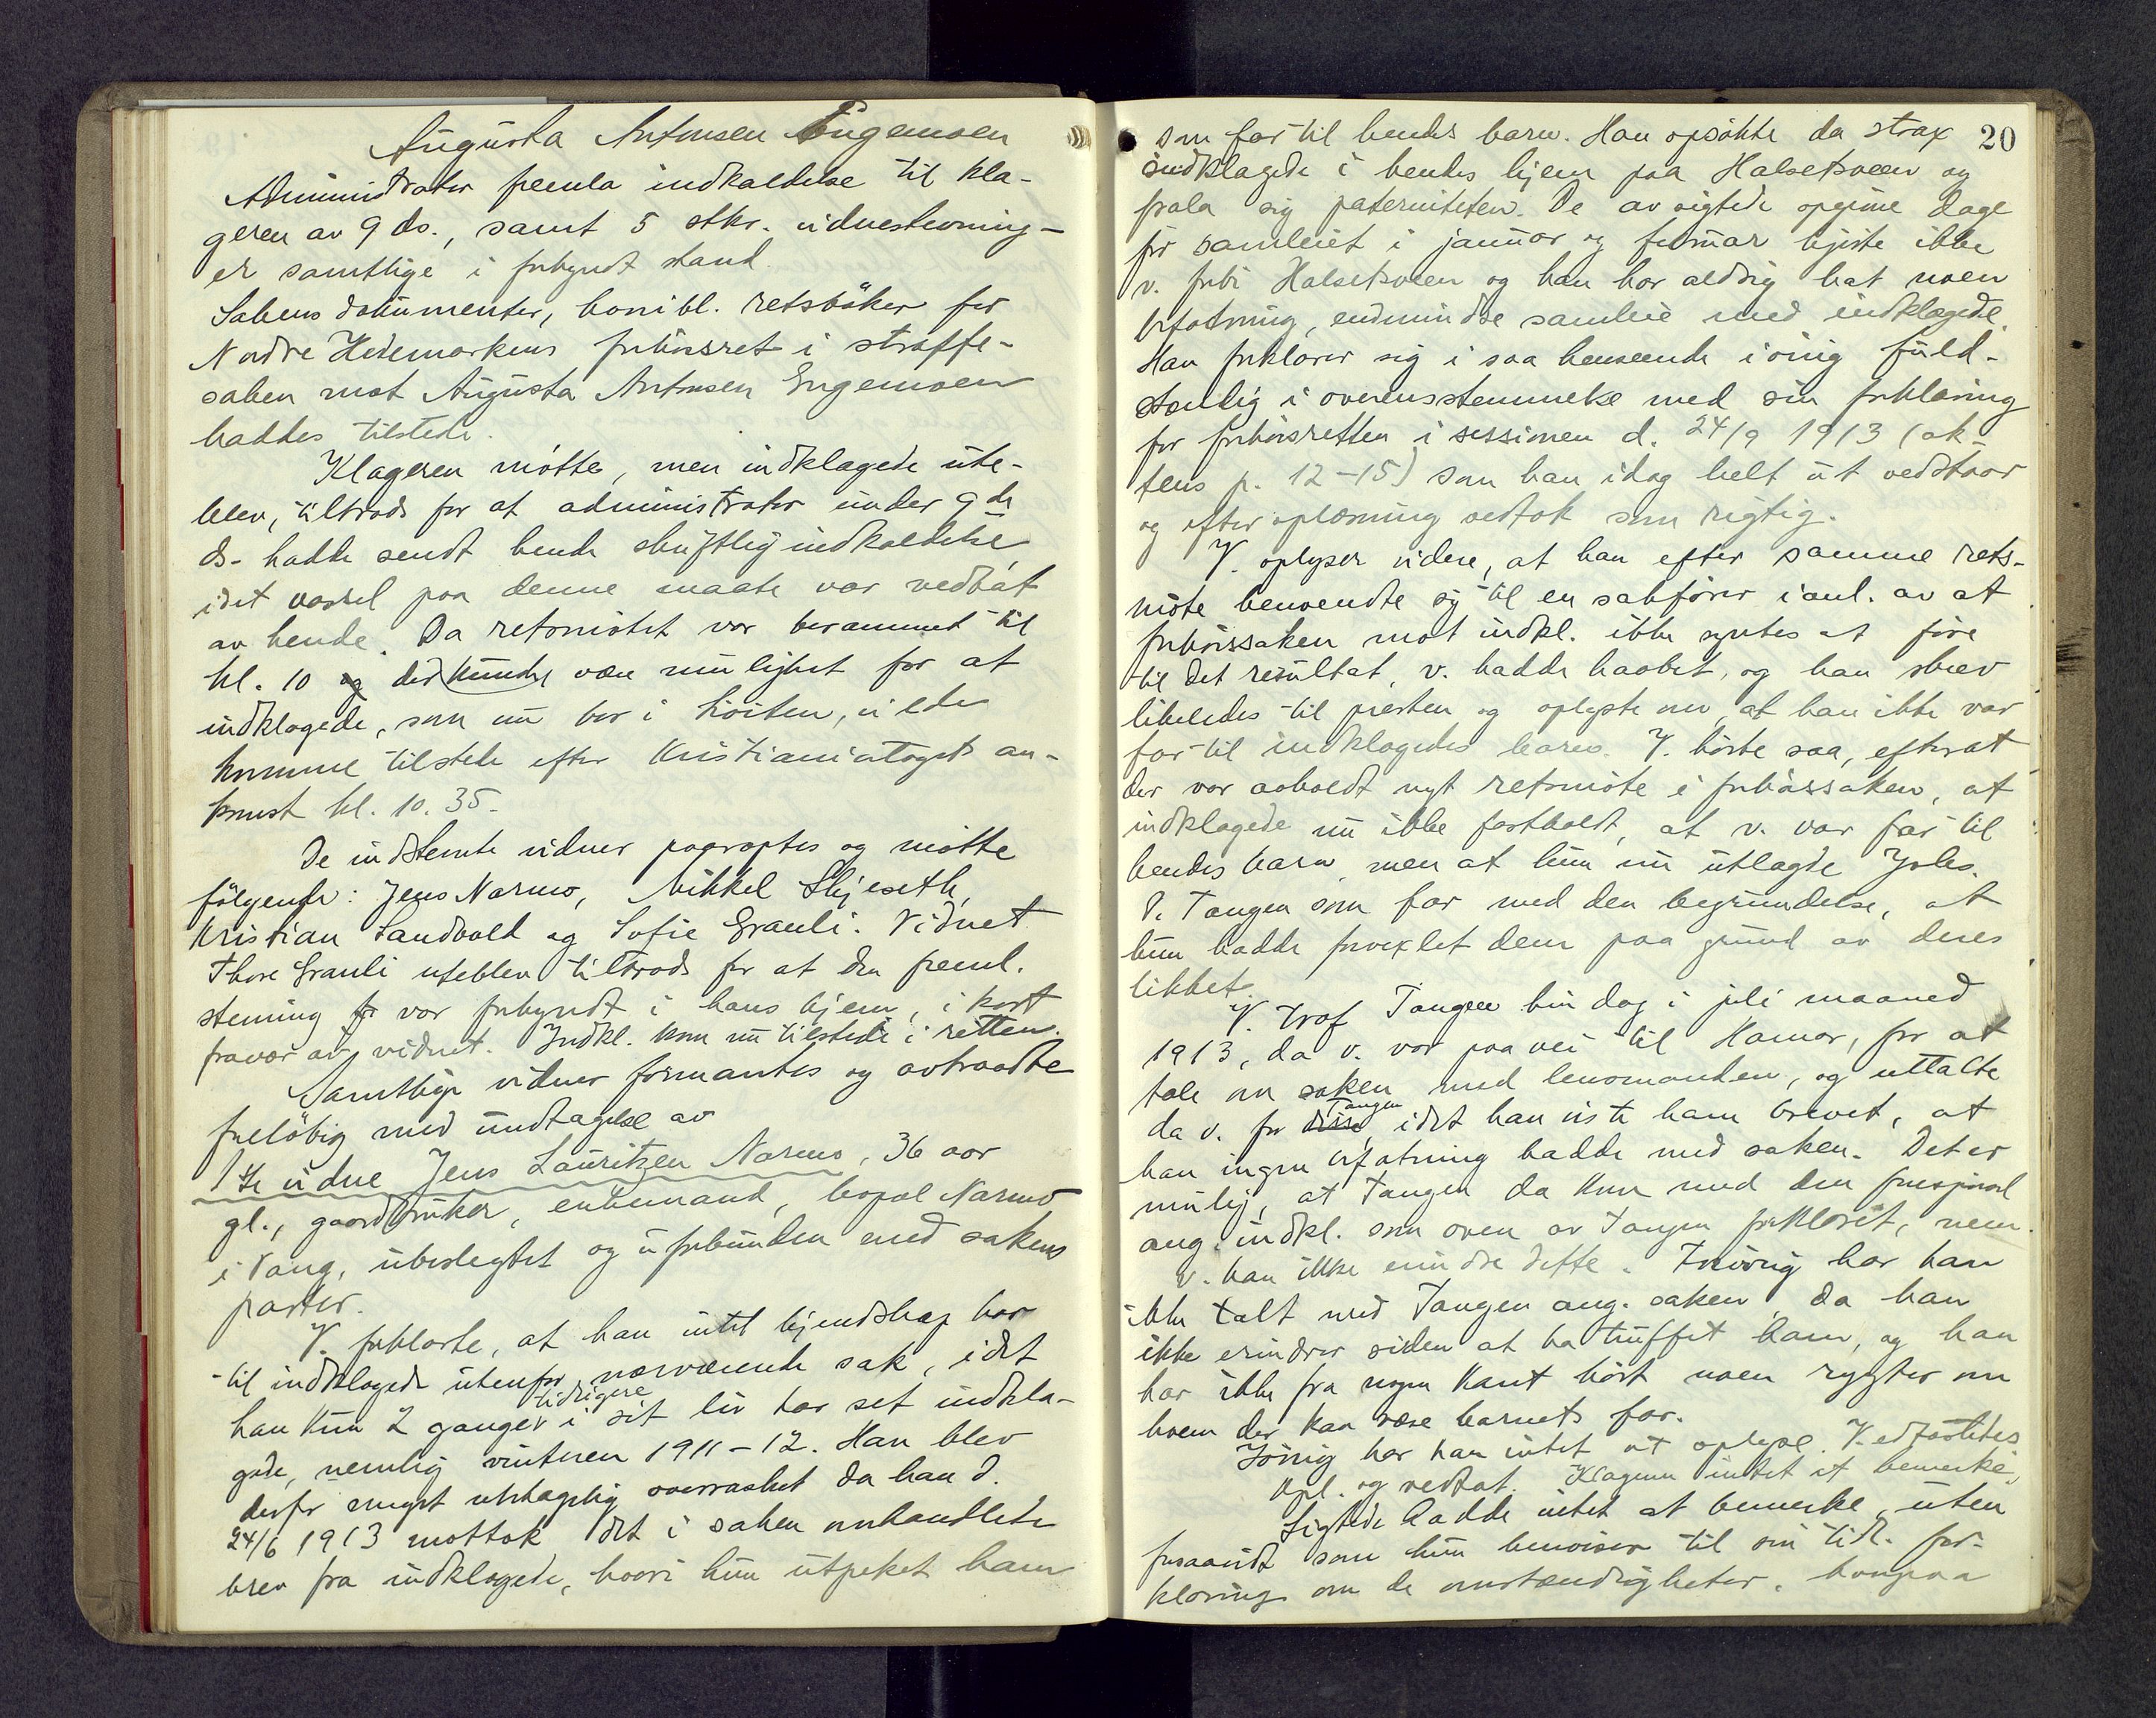 Augusta Antonsen Engemoen
Administrator fremla indkaldelse til kla-
geren av 9 ds., samt 5 stkr. vidnestevning-
er samtlige i forkyndt stand.
Sakens dokumenter, hvoribl. retsbøker for
Nordre Hedemarkens forhørsret i straffe-
saken mot Augusta Antonsen Engemoen
haddes tilstede.
Klageren møtte, men indklagede ute-
blev, tiltrods for at administrator under 9de
ds. hadde sendt hende skriftlig indkaldelse,
idet varsel paa denne maate var vedtat
av hende. Da retsmøtet var berammet til
kl. 10 og det kunde være mulighet for at
indklagede, som nu bor i Løiten, vilde
komme tilstede efter Kristianiatogets an-
komst kl. 10.35.
De indstevnte vidner paaroptes og møtte
følgende: Jens Narmo, Mikkel Skjeseth,
Kristian Sandvold og Sofie Granli. Vidnet
Thore Granli uteblev tiltrods for at den freml.
stevning var forkyndt i hans hjem, i kort
fravær av vidnet. Indkl. kom nu tilstede i retten.
Samtlige vidner formantes og avtraadte
foreløbig med undtagelse av
1ste vidne Jens Lauritzen Narmo, 36 aar
gl., gaardbruker, enkemand, bopæl Narmo
i Vang, ubeslegtet og uforbunden med sakens
parter.
V. forklarte, at han intet kjendskap har
til indklagede utenfor nærværende sak, idet
han kun 2 ganger tidligere i sit liv har set indkla-
gede, nemlig vinteren 1911-12. Han blev
derfor meget ubehagelig overrasket da han d.
24/6 1913 mottok det i saken omhandlede
brev fra indklagede, hvori hun utpeket ham
20
som far til hendes barn. Han opsøkte da strax
indklagede i hendes hjem paa Halsetsveen og
frala sig paterniteten. De av sigtede opgivne dage
for samleiet i januar og februar kjørte ikke
v. forbi Halsetsveen og han har aldrig hat noen
befatning, endmindre samleie med indklagede.
Han forklarer sig i saa henseende iøvrig fuld-
stændig i overensstemmelse med sin forklaring
for forhørsretten i sessionen d. 24/9 1913 (ak-
tens p. 12-15) som han idag helt ut vedstaar
og efter oplæsning vedtok som rigtig.
V. oplyser videre, at han efter samme rets-
møte henvendte sig til en sakfører i anl. av at
forhørssaken mot indkl. ikke syntes at føre
til det resultat, v. hadde haabet, og han skrev
likeledes til presten og oplyste om, at han ikke var
far til indklagedes barn. V. hørte saa, efterat
der var avholdt nyt retsmøte i forhørssaken, at
indklagede nu ikke fastholdt, at v. var far til
hendes barn, men at hun nu utlagde Johs.
P. Tangen som far med den begrundelse, at
hun hadde forvexlet dem paa grund av deres
likhet.
V. traf Tangen hin dag i juli maaned
1913, da v. var paa vei til Hamar, for at
tale om saken med lensmanden, og uttalte
da v. for Tangen, idet han viste ham brevet, at
han ingen befatning hadde med saken. Det er
mulig, at Tangen da kom med den forespørsel
ang. indkl. som oven av Tangen forklaret, men
v. kan ikke erindre dette. Forøvrig har han
ikke talt med Tangen ang. saken, da han
ikke erindrer siden at ha truffet ham, og han
har ikke fra nogen kant hørt noen rygter om
hvem der kan være barnets far.
Iøvrig har han intet at oplyse. Vedfæstedes
Opl. og vedtat. Klageren intet at bemerke.
Sigtede hadde intet at bemerke, uten
forsaavidt som hun henviser til sin tidl. for-
klaring om de omstændigheter, hvorpaa